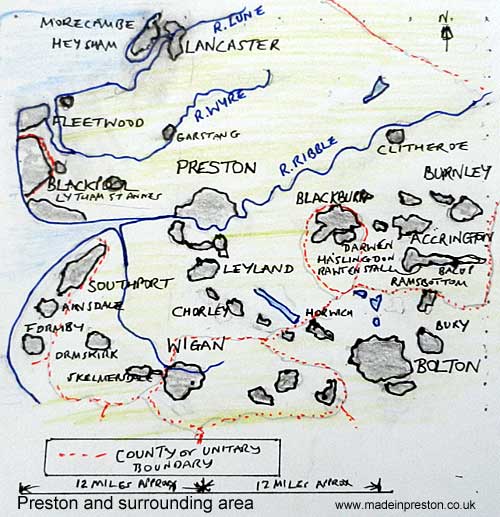 MORECAMBE
HEYSHAM
LANCASTER
R. LUNE
N.
FLEETWOOD
R. WYRE
GARSTANG
R. RIBBLE
CLITHEROE
BLACKPOOL
LYTHAM ST ANNES
PRESTON
BURNLEY
BLACKBURN
DARWEN
ACCRINGTON
HASLINGDON
RAWTENSTALL
BACUP
RAMSBOTTOM
SOUTHPORT
LEYLAND
AINSDALE
CHORLEY
HORWICH
FORMBY
ORMSKIRK
WIGAN
BURY
SKELMERDALE
BOLTON
COUNTY OR UNITARY
BOUNDARY
12 MILES APPROX
12 MILES APROX
Preston and surrounding area
www.madeinpreston.co.uk